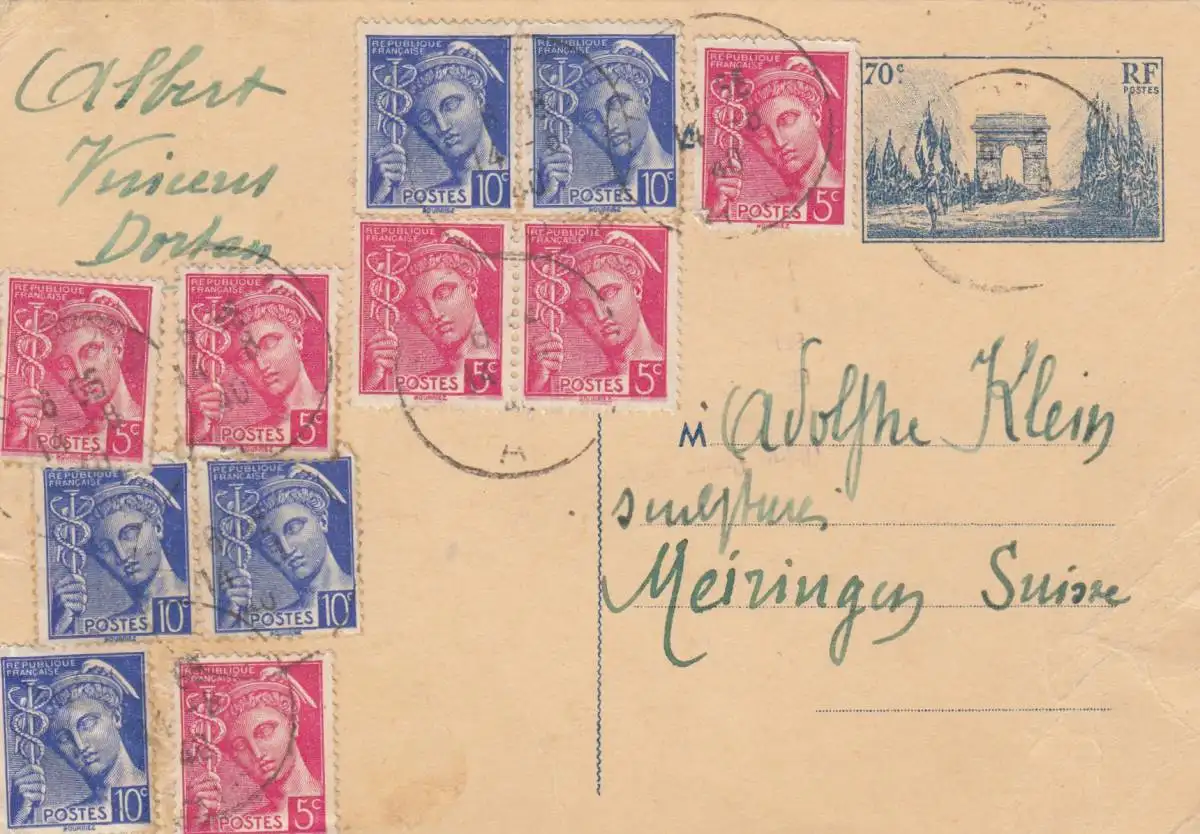 Albert
Vincent
Dortan
REPUBLIQUE
FRANÇAISE
POSTES 10c
REPUBLIQUE
FRANÇAISE
POSTES 10c
REPUBLIQUE
FRANÇAISE
POSTES 5c
70c
RF
POSTES
REPUBLIQUE
FRANÇAISE
POSTES 5c
REPUBLIQUE
FRANÇAISE
POSTES 5c
REPUBLIQUE
FRANÇAISE
POSTES 5c
REPUBLIQUE
FRANÇAISE
POSTES 5c
A
REPUBLIQUE
FRANÇAISE
POSTES 10c
REPUBLIQUE
FRANÇAISE
POSTES 10c
REPUBLIQUE
FRANÇAISE
POSTES 10c
REPUBLIQUE
FRANÇAISE
POSTES 5c
M Adolphe Klein
Meiringen Suisse